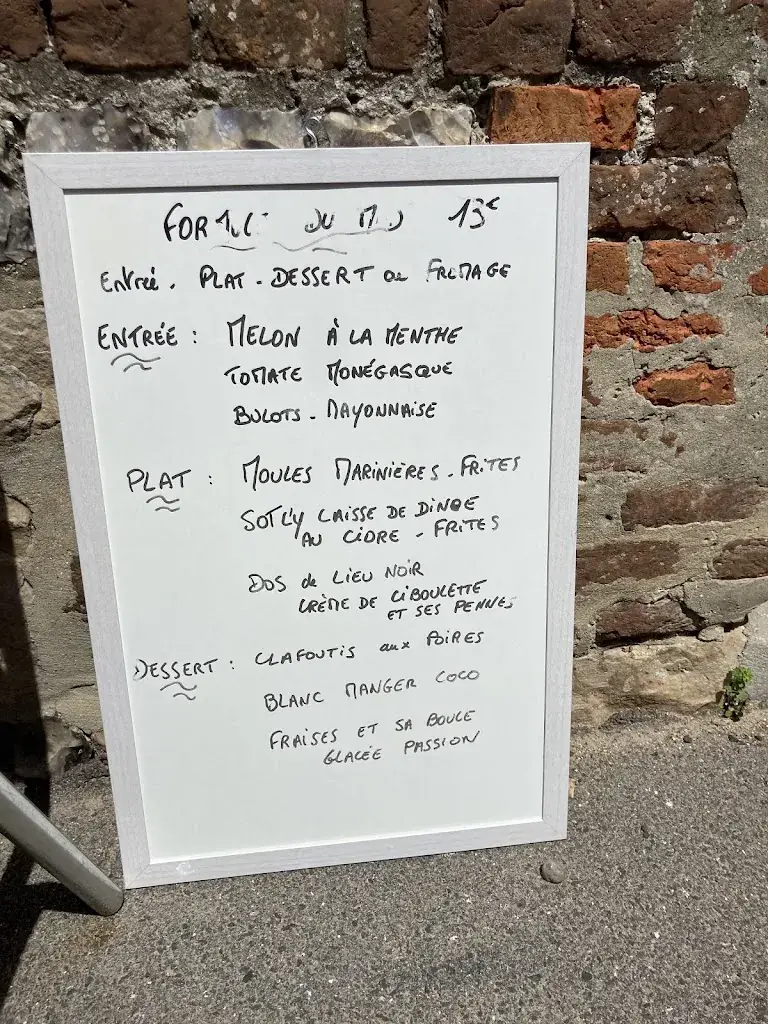 DU 13€
Entrée. PLAT - DESSERT ou FROMAGE
ENTRÉE : MELON À LA MENTHE
TOMATE MONÉGASQUE
BULOTS - MAYONNAISE
PLAT : MOULES MARINIÈRES - FRITES
SOT L'Y LAISSE DE DINDE
AU CIDRE - FRITES
DOS de LIEU NOIR
CRÈME DE CIBOULETTE
ET SES PENNES
DESSERT : CLAFOUTIS aux POIRES
BLANC MANGER COCO
FRAISES ET SA BOULE
GLACÉE PASSION